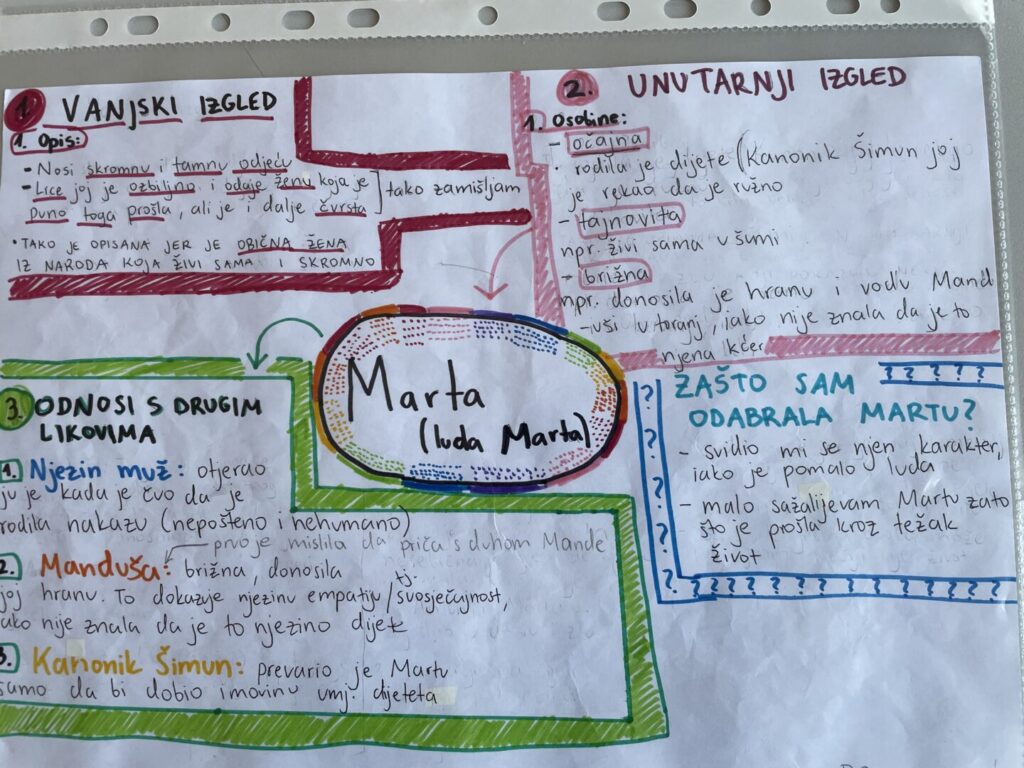 1. VANJSKI IZGLED
1. Opis:
- Nosi skromnu i tamnu odjeću
- Lice joj je ozbiljno i odaje ženu koja je
puno toga prošla, ali je i dalje čvrsta
tako zamišljam
• TAKO JE OPISANA JER JE OBIČNA ŽENA
IZ NARODA KOJA ŽIVI SAMA I SKROMNO
2. UNUTARNJI IZGLED
1. Osobine:
- očajna
• rodila je dijete (Kanonik Šimun joj
je rekao da je ružno
- tajnovita
npr. živi sama u šumi
- brižna
npr. donosila je hranu i vodu Mandi
-uši u toranj, iako nije znala da je to
njena kćer
Marta
(luda Marta)
3. ODNOSI S DRUGIM
LIKOVIMA
1. Njezin muž: otjerao
ju je kada je čuo da je
rodila nakazu (nepošteno i nehumano)
prvo je mislila da priča s duhom Mande
2. Manduša: brižna, donosila
joj hranu. To dokazuje njezinu empatiju/suosjećajnost,
tj.
iako nije znala da je to njezino dijete
3. Kanonik Šimun: prevario je Martu
samo da bi dobio imovinu umj. djeteta
ZAŠTO SAM
ODABRALA MARTU?
- svidio mi se njen karakter,
iako je pomalo luda
- malo sažalijevam Martu zato
što je prošla kroz težak
život
? ? ? ? ?
? ? ? ? ?
? ? ? ? ? ? ? ? ? ? ?